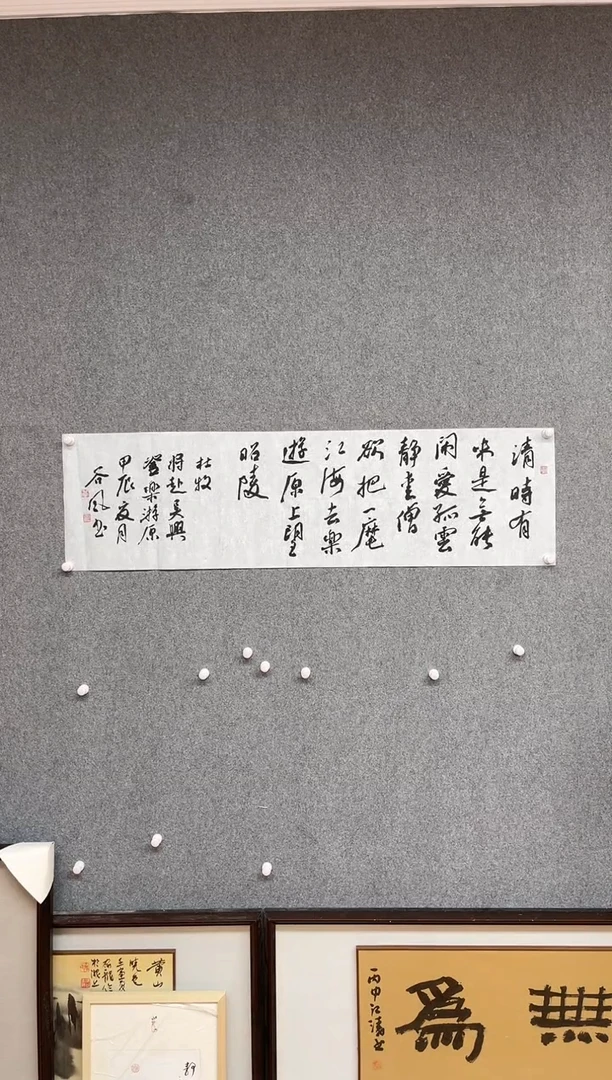 清時有
味是無能
闲愛孤雲
静愛僧
欲把一麾
江海去樂
遊原上望
昭陵
杜牧
将赴吴興
登樂游原
甲辰夏月
谷风书
黄山
無為
丙申江濤书
静